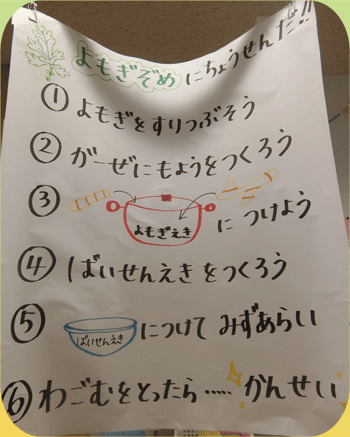 よもぎぞめにちょうせんだ!!
① よもぎをすりつぶそう
② ガーゼにもようをつくろう
③ よもぎえき につけよう
④ ばいせんえきをつくろう
⑤ ばいせんえき につけて みずあらい
⑥ わごむをとったら‥‥‥ かんせい